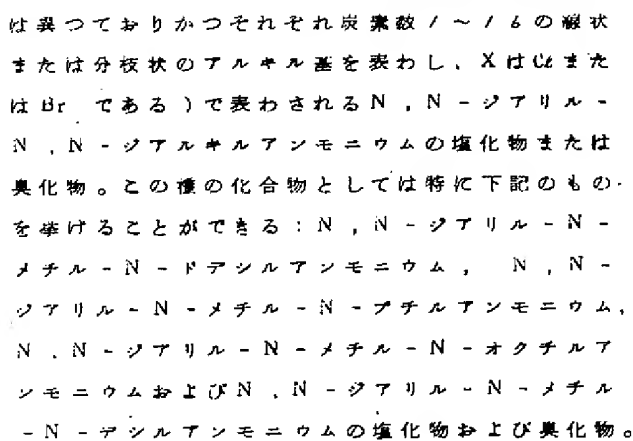 は異つておりかつそれぞれ炭素数1〜16の線状
または分枝状のアルキル基を表わし、XはClまた
はBr である)で表わされるN,N-ジアリル-
N,N-ジアルキルアンモニウムの塩化物または
臭化物。この種の化合物としては特に下記のもの
を挙げることができる:N,N-ジアリル-N-
メチル-N-ドデシルアンモニウム, N,N-
ジアリル-N-メチル-N-ブチルアンモニウム,
N,N-ジアリル-N-メチル-N-オクチルア
ンモニウムおよびN,N-ジアリル-N-メチル
-N-デシルアンモニウムの塩化物および臭化物。